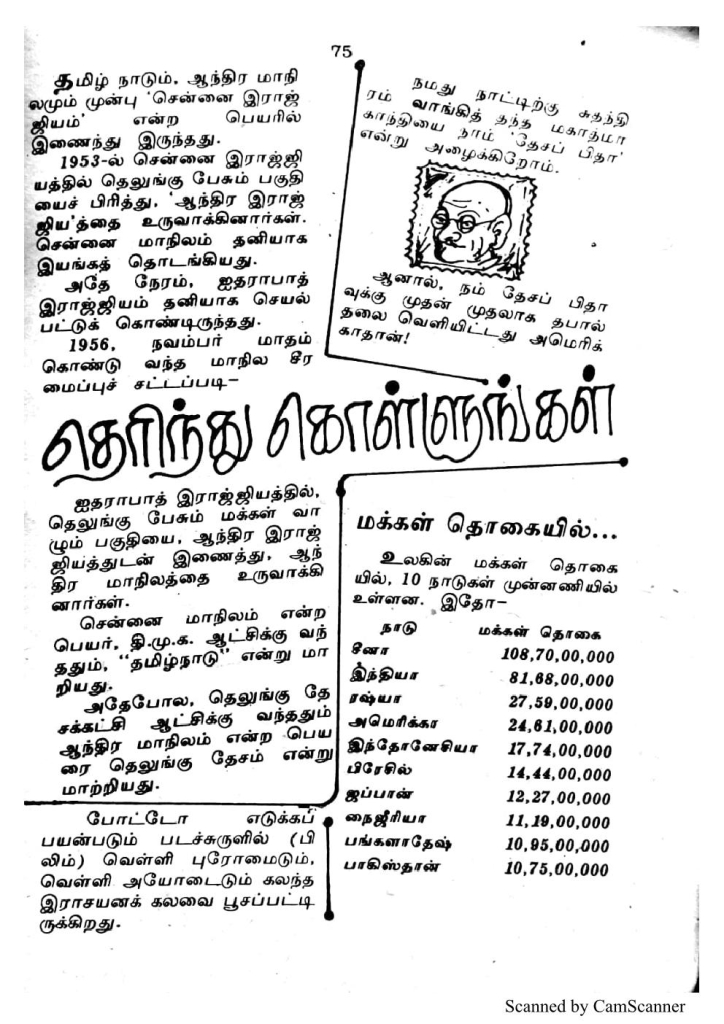 75
தமிழ் நாடும், ஆந்திர மாநி
லமும் முன்பு 'சென்னை இராஜ்
ஜியம்' என்ற பெயரில்
இணைந்து இருந்தது.
1953-ல் சென்னை இராஜ்ஜி
யத்தில் தெலுங்கு பேசும் பகுதி
யைச் பிரித்து, 'ஆந்திர இராஜ்
ஜிய'த்தை உருவாக்கினார்கள்.
சென்னை மாநிலம் தனியாக
இயங்கத் தொடங்கியது.
அதே நேரம், ஐதராபாத்
இராஜ்ஜியம் தனியாக செயல்
பட்டுக் கொண்டிருந்தது.
1956, நவம்பர் மாதம்
கொண்டு வந்த மாநில சீர
மைப்புச் சட்டப்படி–
நமது நாட்டிற்கு சுதந்தி
ரம் வாங்கித் தந்த மகாத்மா
காந்தியை நாம் 'தேசப் பிதா'
என்று அழைக்கிறோம்.
ஆனால், நம் தேசப் பிதா
வுக்கு முதன் முதலாக தபால்
தலை வெளியிட்டது அமெரிக்
காதான்!
தெரிந்து கொள்ளுங்கள்
ஐதராபாத் இராஜ்ஜியத்தில்,
தெலுங்கு பேசும் மக்கள் வா
ழும் பகுதியை, ஆந்திர இராஜ்
ஜியத்துடன் இணைத்து, ஆந்
திர மாநிலத்தை உருவாக்கி
னார்கள்.
சென்னை மாநிலம் என்ற
பெயர், தி.மு.க. ஆட்சிக்கு வந்
ததும், "தமிழ்நாடு" என்று மா
றியது.
அதேபோல, தெலுங்கு தே
சக்கட்சி ஆட்சிக்கு வந்ததும்
ஆந்திர மாநிலம் என்ற பெய
ரை தெலுங்கு தேசம் என்று
மாற்றியது.
போட்டோ எடுக்கப்
பயன்படும் படச்சுருளில் (பி
லிம்) வெள்ளி புரோமைடும்,
வெள்ளி அயோடைடும் கலந்த
இராசயனக் கலவை பூசப்பட்டி
ருக்கிறது.
மக்கள் தொகையில்...
உலகின் மக்கள் தொகை
யில், 10 நாடுகள் முன்னணியில்
உள்ளன. இதோ–
நாடு மக்கள் தொகை
சீனா 108,70,00,000
இந்தியா 81,68,00,000
ரஷ்யா 27,59,00,000
அமெரிக்கா 24,61,00,000
இந்தோனேசியா 17,74,00,000
பிரேசில் 14,44,00,000
ஜப்பான் 12,27,00,000
நைஜீரியா 11,19,00,000
பங்களாதேஷ் 10,95,00,000
பாகிஸ்தான் 10,75,00,000
Scanned by CamScanner